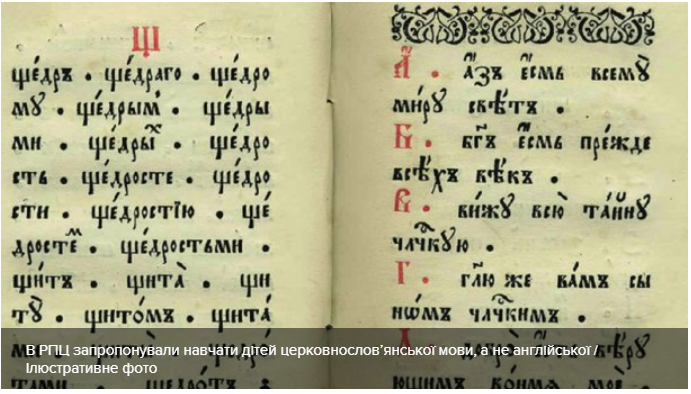 Щ
ще́дръ . ще́драго . ще́дро
мꙋ . ще́дрым̾ . ще́дры
ми . ще́дрыⷯ . ще́дро
сть . ще́дросте . ще́дро
сти . ще́дростїю . ще́
дростеⷨ . ще́дростьми .
щи́тъ . щита̀ . щи
тꙋ̀ . щито́мъ . щита́
А҃ . а҆́зъ є҆́смь всемꙋ̀
ми́рꙋ свѣ́тъ .
Б . бг҃ъ є҆́смь пре́жде
всѣ́хъ вѣ́къ .
В . ви́жꙋ всю̀ та́йнꙋ
члч҃кꙋю .
Г . гл҃ю же ва́мъ сы
нѡ́мъ члч҃кимъ .
вѣ́рꙋ
ющимъ
В РПЦ запропонували навчати дітей церковнослов’янської мови, а не англійської /
Ілюстративне фото